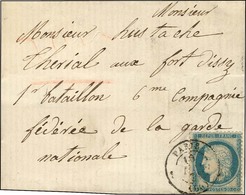 Monsieur
Monsieur hustache
Therial aux fort dissy
1er bataillon 6me Compagnie
fédérée de la garde
nationale
REPUB. FRANC.
PARIS